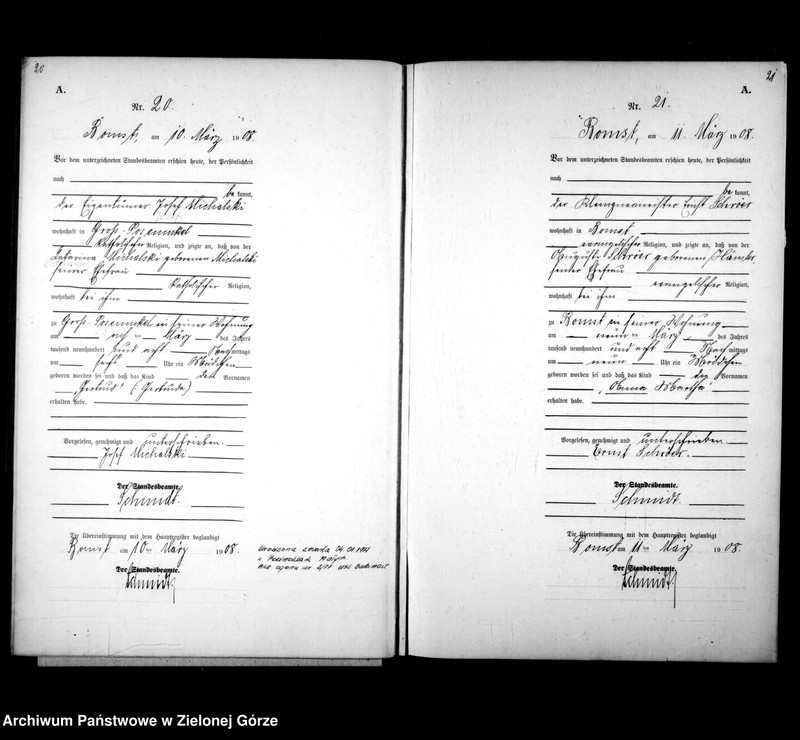 20
A.
Nr. 20.
Bomst, am 10. März 1908.
Vor dem unterzeichneten Standesbeamten erschien heute, der Persönlichkeit
nach
be kannt,
der Eigentümer Josef Michalski
wohnhaft in Groß-Posemukel
katholischer Religion, und zeigte an, daß von der
Michalski geborenen Michalski
seiner Ehefrau
katholischer Religion,
wohnhaft bei ihm
zu Groß-Posemukel in seiner Wohnung
am März des Jahres
tausend neunhundert und acht Nachmittags
um sechs Uhr ein Mädchen
geboren worden sei und daß das Kind den Vornamen
„Gertrud" (: Gertruda)
erhalten habe.
Vorgelesen, genehmigt und unterschrieben.
Josef Michalski
Der Standesbeamte.
Schmidt.
Die Übereinstimmung mit dem Hauptregister beglaubigt
Bomst am 10ten März 1908.
Der Standesbeamte.
Schmidt
21
A.
Nr. 21.
Bomst, am 11. März 1908.
Vor dem unterzeichneten Standesbeamten erschien heute, der Persönlichkeit
nach
be kannt,
der Klempnermeister Ernst Schröer
wohnhaft in Bomst,
evangelischer Religion, und zeigte an, daß von der
Auguste Schröer geborenen
seiner Ehefrau
evangelischer Religion,
wohnhaft bei ihm
zu Bomst in seiner Wohnung
am neunten März des Jahres
tausend neunhundert und acht Nachmittags
um neun Uhr ein Mädchen
geboren worden sei und daß das Kind den Vornamen
„Anna Martha"
erhalten habe.
Vorgelesen, genehmigt und unterschrieben.
Ernst Schröer.
Der Standesbeamte.
Schmidt.
Die Übereinstimmung mit dem Hauptregister beglaubigt
Bomst am 11ten März 1908.
Der Standesbeamte.
Schmidt
Archiwum Państwowe w Zielonej Górze